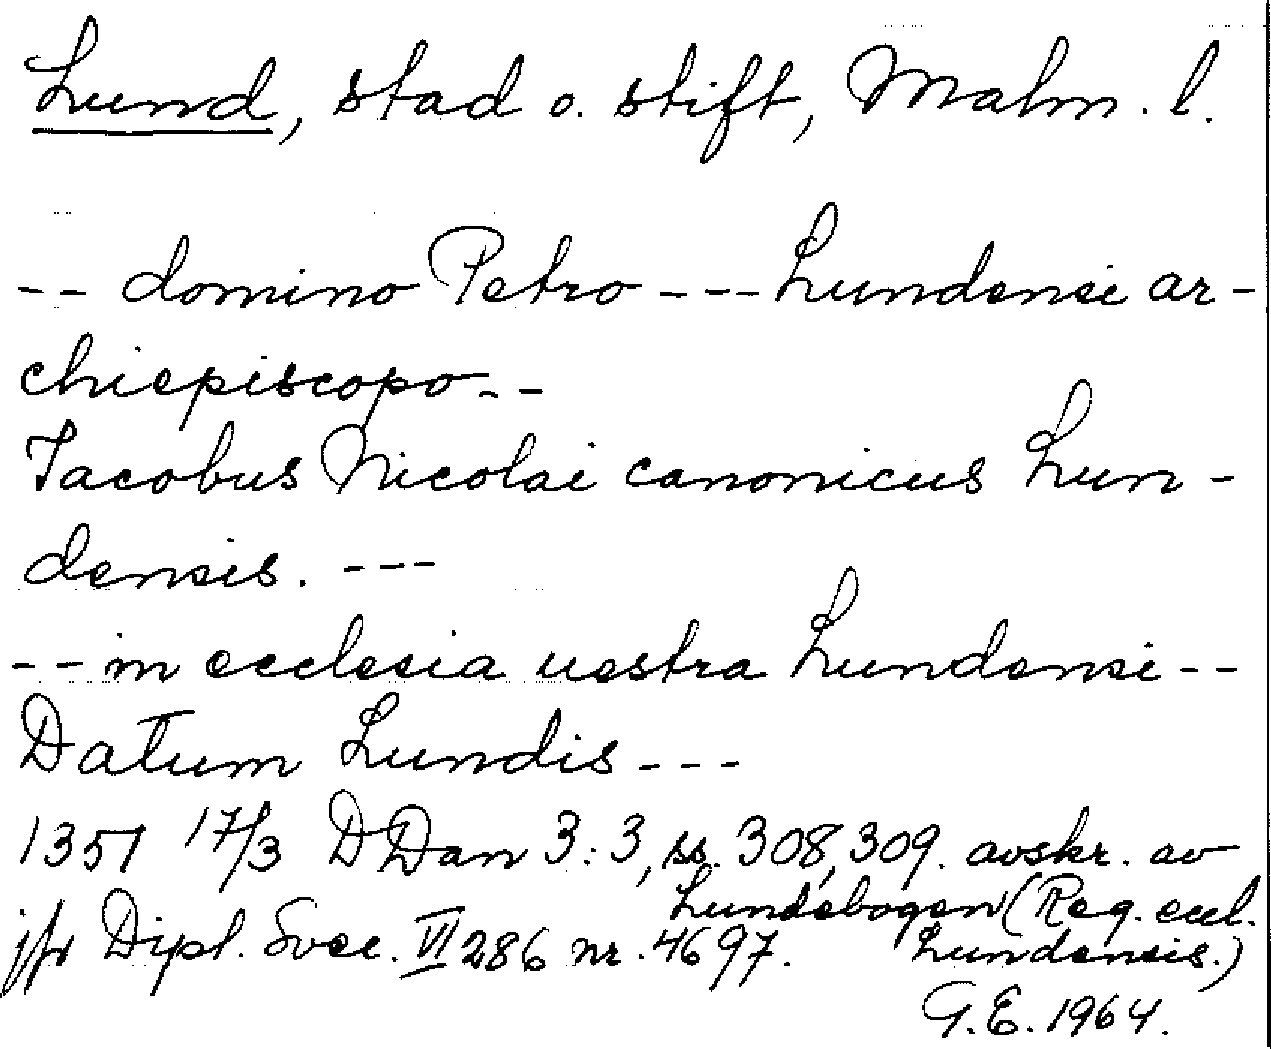 Lund, stad o. stift, Malm. l.
-- domino Petro --- Lundensi ar-
chiepiscopo --
Iacobus Nicolai canonicus Lun-
densis. ---
-- in ecclesia uestra Lundensi --
Datum Lundis ---
1351 17/3 DDan 3:3, ss. 308, 309. avskr. av
Lundebogen (Reg. eccl.
Lundensis.)
jfr Dipl. Svec. VI 286 nr. 4697.
G.E. 1964.